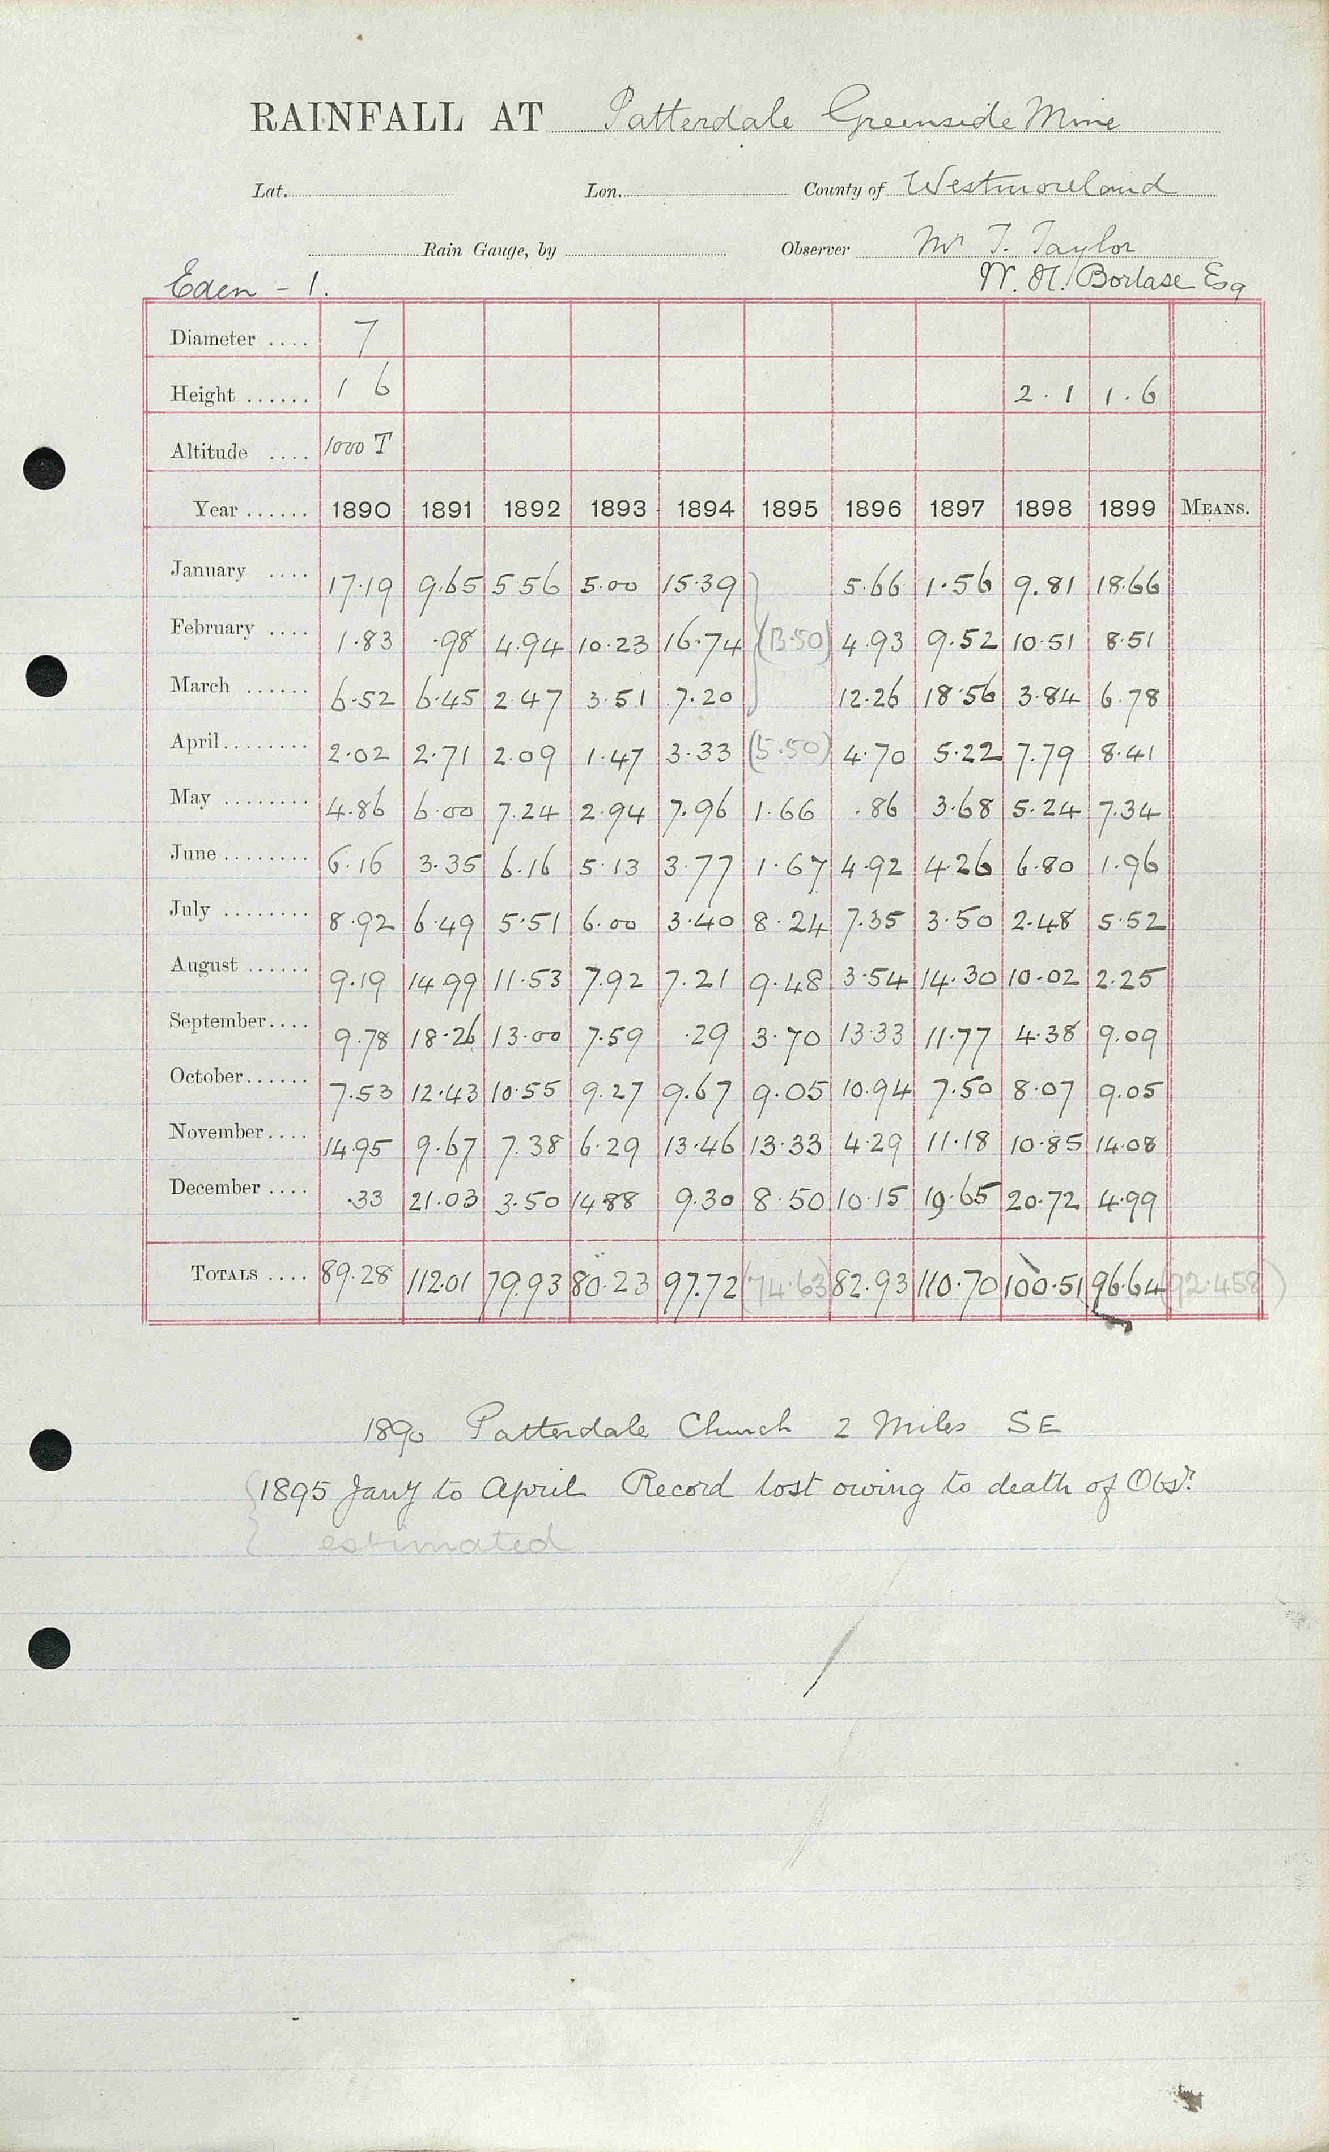 RAINFALL AT Patterdale Greenside Mine
Lat. Lon. County of Westmoreland
Rain Gauge, by Observer Mr T. Taylor
Eden - 1. W. H. Borlase Esq
Diameter .... 7
Height ...... 1 6 2.1 1.6
Altitude .... 1000 T
Year ...... 1890 1891 1892 1893 1894 1895 1896 1897 1898 1899 MEANS.
January .... 17.19 9.65 5 56 5.00 15.39 5.66 1.56 9.81 18.66
February .... 1.83 .98 4.94 10.23 16.74 (13.50) 4.93 9.52 10.51 8.51
March ...... 6.52 6.45 2.47 3.51 7.20 12.26 18.56 3.84 6.78
April........ 2.02 2.71 2.09 1.47 3.33 (5.50) 4.70 5.22 7.79 8.41
May ........ 4.86 6.00 7.24 2.94 7.96 1.66 .86 3.68 5.24 7.34
June ........ 6.16 3.35 6.16 5.13 3.77 1.67 4.92 4.26 6.80 1.96
July ........ 8.92 6.49 5.51 6.00 3.40 8.24 7.35 3.50 2.48 5.52
August ...... 9.19 14.99 11.53 7.92 7.21 9.48 3.54 14.30 10.02 2.25
September.... 9.78 18.26 13.00 7.59 .29 3.70 13.33 11.77 4.38 9.09
October...... 7.53 12.43 10.55 9.27 9.67 9.05 10.94 7.50 8.07 9.05
November.... 14.95 9.67 7.38 6.29 13.46 13.33 4.29 11.18 10.85 14.08
December .... .33 21.03 3.50 14.88 9.30 8.50 10.15 19.65 20.72 4.99
TOTALS .... 89.28 112.01 79.93 80.23 97.72 (74.63) 82.93 110.70 100.51 96.64 (92.458)
1890 Patterdale Church 2 Miles SE
1895 Jany to April Record lost owing to death of Obsr.
estimated